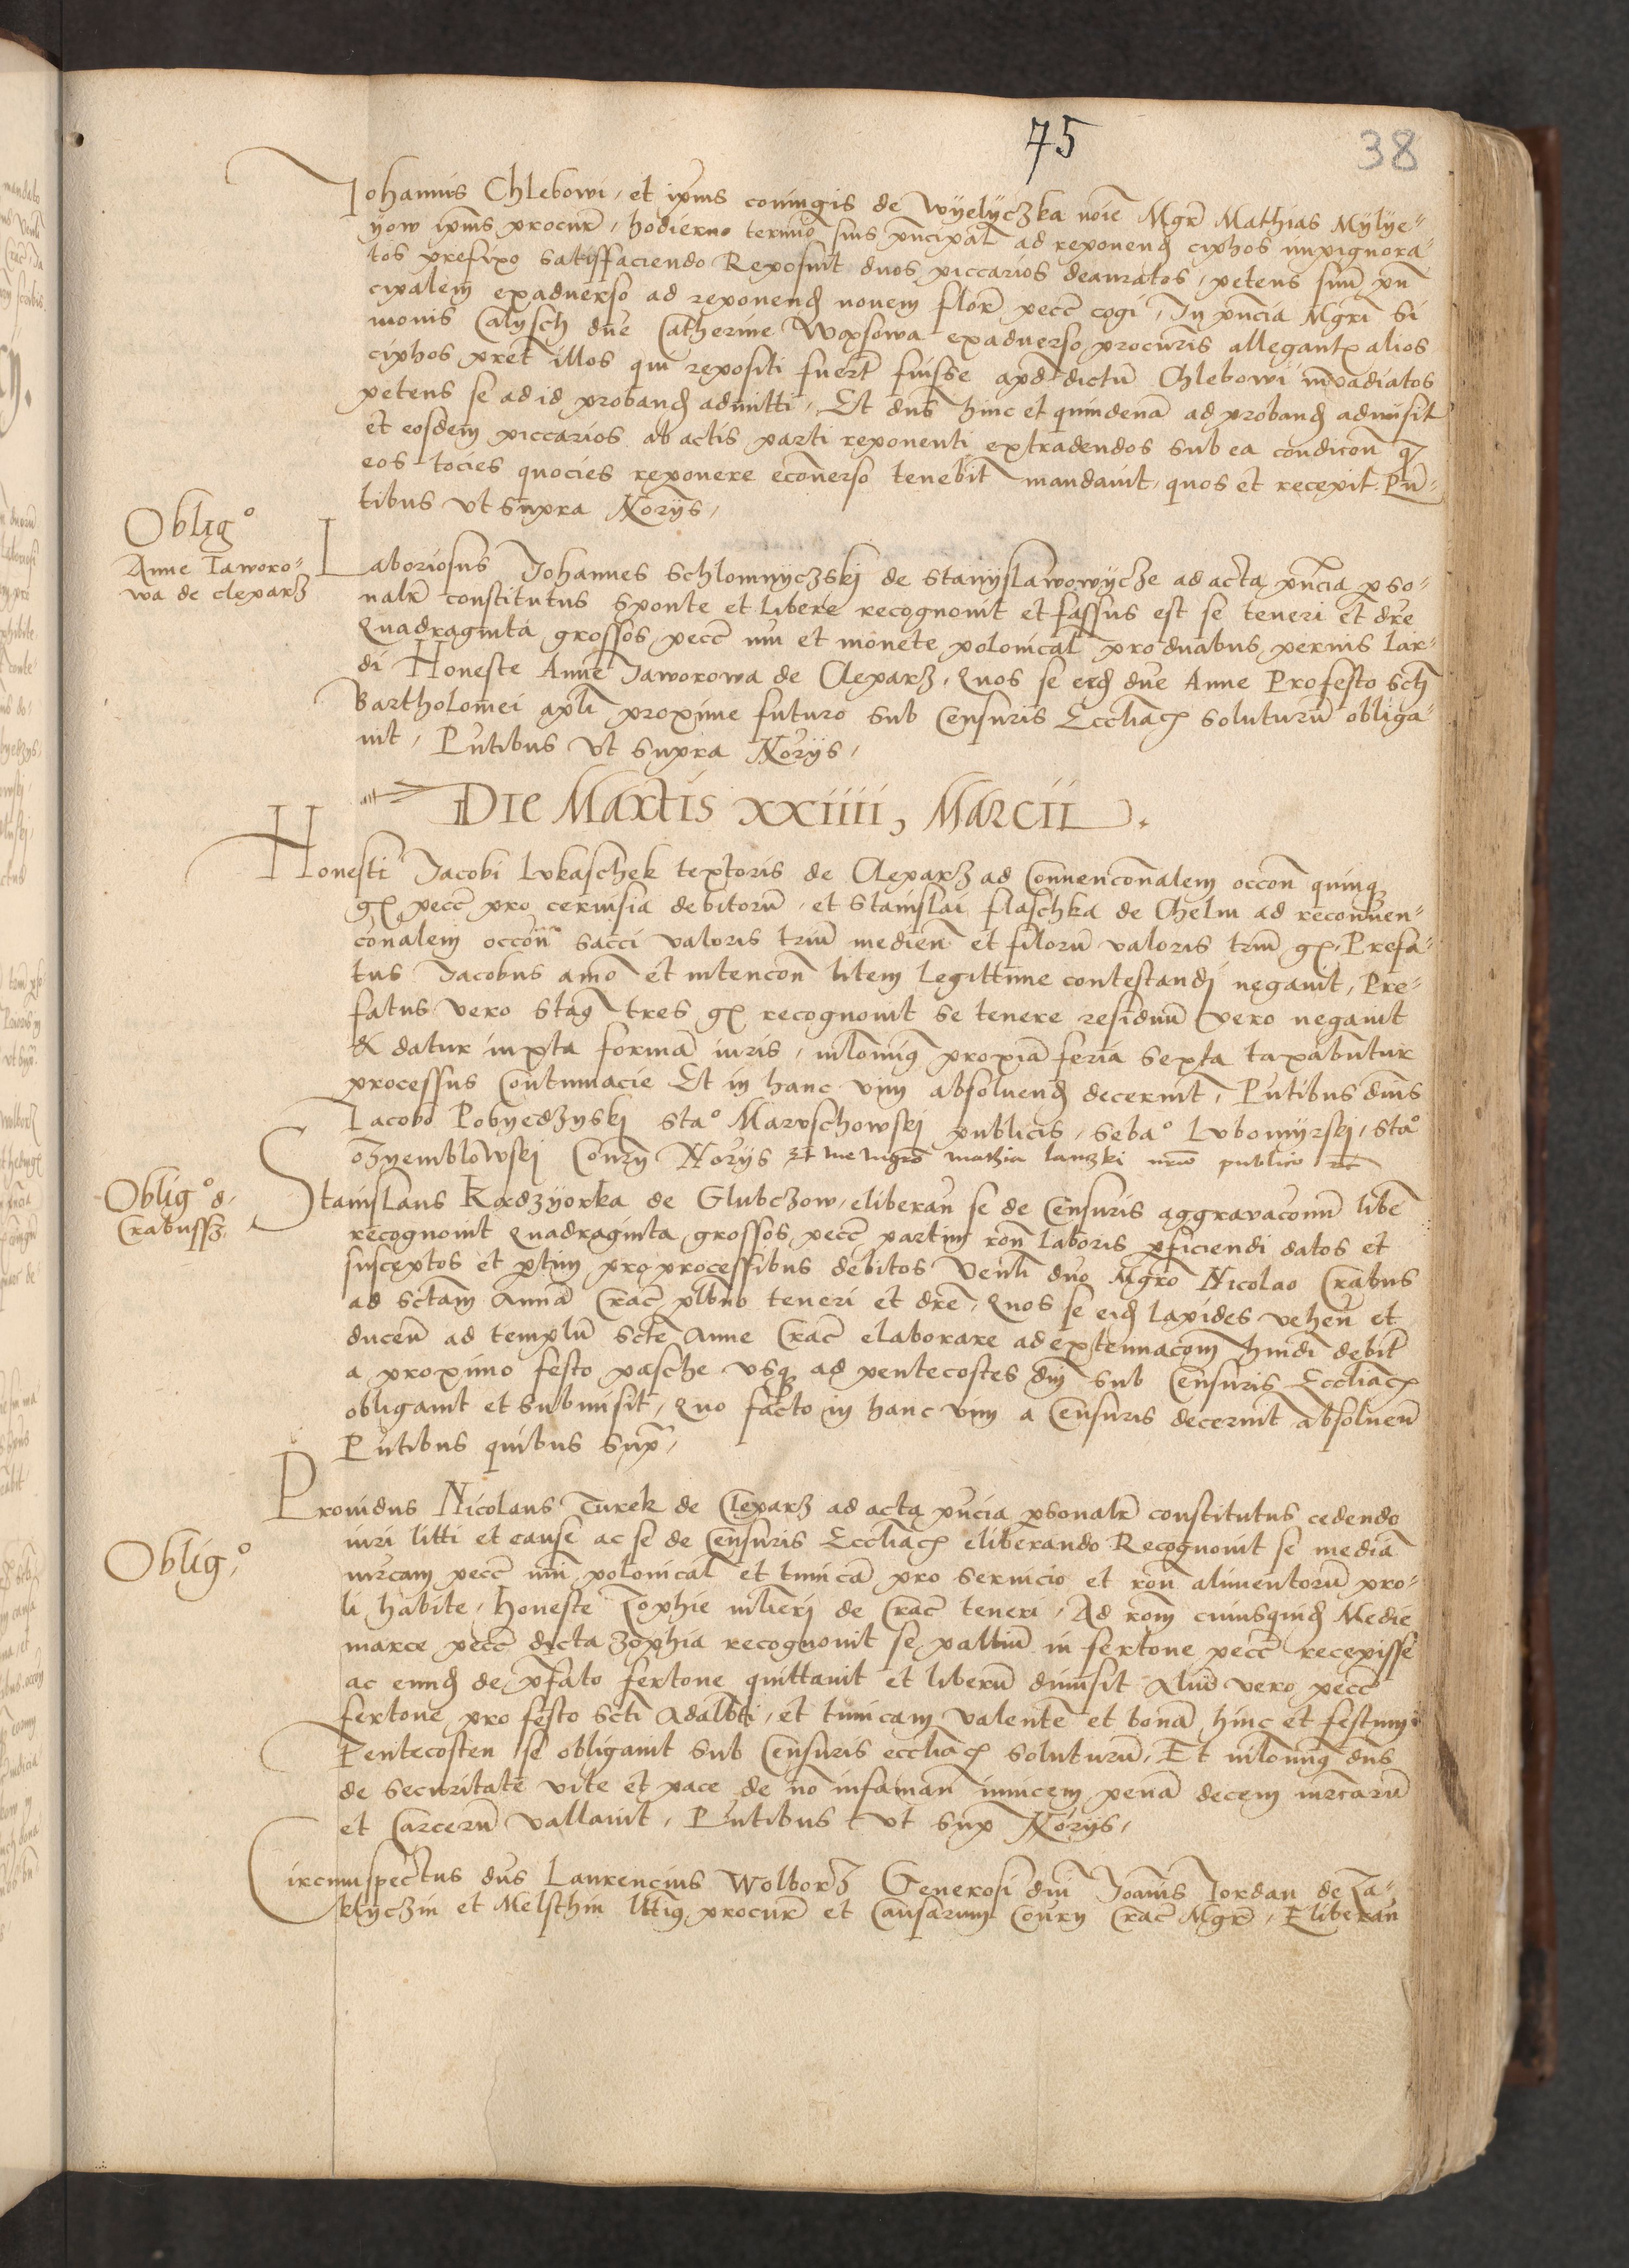 75
38
Johannis Chlebowi, et ipius coniugis de Wyelyczka noie Mgr Mathias Mylye-
yow ipius procur, hodierno termio suis pncipal ad reponend ciphos impignora-
tos prefixo satisffaciendo Reposuit duos piccarios deauratos, petens suu pn
cipalem exaduerso ad reponend nouem flor pecc cogi, In pncia Mgri Si
monis Calysch dne Catherine Woxsowa exaduerso procuris allegantz alios
ciphos pret illos qui repositi fuert fuisse apd dictu Chlebowi inuadiatos
petens se ad id proband admitti, Et dns hinc et quindena ad proband admisit
et eosdem piccarios ab actis parti reponenti extradendos sub ea condicon q
eos tocies quocies reponere econuerso tenebit mandauit, quos et recepit. Pn-
tibus vt supra Norijs,
Oblig°
Anne Iaworo-
wa de cleparz
Laboriosus Johannes Schlomnyczskj de Stanyslawowycze ad acta pncia pso-
nalr constitutus sponte et libere recognouit et fassus est se teneri et dre
Quadraginta grossos pecc nui et monete polonical pro duabus pernis lar-
di Honeste Anne Jaworowa de Cleparz, Quos se eid dne Anne Profesto scti
Bartholomei apli proxime futuro sub Censuris Eccliacz soluturu obliga-
uit, Pntibus vt supra Norijs,
DIE Martis XXIIII, MARCII.
Honesti Jacobi Lvkaschek textoris de Cleparz ad Conuenconalem occon quinq
gz pecc pro ceruisia debitoru, et Stanislai flaschka de Chelm ad reconuen-
conalem occon sacci valoris triu medien et filoru valoris triu gz, Prefa-
tus Jacobus amo et intencon litem legittime contestandj negauit, Pre-
fatus vero Stas tres gz recognouit se tenere residuu vero negauit
& datur iuxta forma iuris, nilomig proxia feria sexta taxabuntur
processus Contumacie Et in hanc vim absoluend decernit, Pntibus dnis
Jacobo Pobyedzyskj Sta° Marvschowskj publicis, Seba° Lvbomyrskj, Sta°
Ozyemblowskj Cōury Norijs et me mgro mathia lanzki nrio publico rc
Oblig° d.
Crabussz.
Stanislaus Kodzyorka de Glubczow, eliberan se de Censuris aggrauaconu libe
recognouit Quadraginta grossos pecc partim ron laboris pficiendi datos et
susceptos et ptim pro processibus debitos Venli dno Mgro Nicolao Crabus
ad sctam Anna Crac plbno teneri et dre, Quos se eid lapides vehen et
ducen ad templu scte Anne Crac elaborare ad extenuacom hmdi debit
a proximo festo pasche vsq ad pentecostes din sub Censuris Eccliacz
obligauit et submisit, Quo facto in hanc vim a Censuris decernit absoluen
Pntibus quibus sup,
Oblig°
Prouidus Nicolaus Turek de Cleparz ad acta pncia psonalr constitutus cedendo
iuri litti et cause ac se de Censuris Eccliacz eliberando Recognouit se media
mrcam pecc nui polonical et tunica pro seruicio et ron alimentoru pro-
li habite, Honeste Zophie mlieri de Crac teneri, Ad rom cuiusquid Medie
marce pecc dicta Zophia recognouit se paltiu in fertone pecc recepisse
ac eund de pfato fertone quittauit et liberu dimisit Aliu vero pecc
fertone pro festo scti Adalbti, et tunicam valente et bona hinc et festum
Pentecosten se obligauit sub Censuris eccliacz soluturu, Et nilomig dns
de securitate vite et pace de no infaman inuicem pena decem mrcaru
et Carceru vallauit, Pntibus vt sup Norijs,
Circumspectus dns Laurencius Wolborz Generosi dni Joanis Jordan de Za-
klyczin et Melschin lttis procur et Causarum Coury Crac Mgr, Eliberan